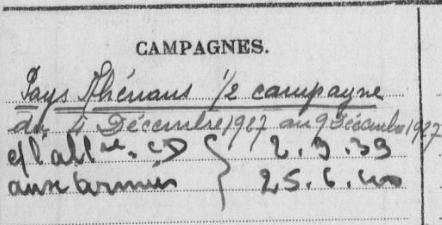 CAMPAGNES.
Pays Rhénans 1/2 campagne
du 4 Décembre 1927 au 9 Décembre 1927
c/ l'allgne CD { 2.9.39
aux armées { 25.6.40